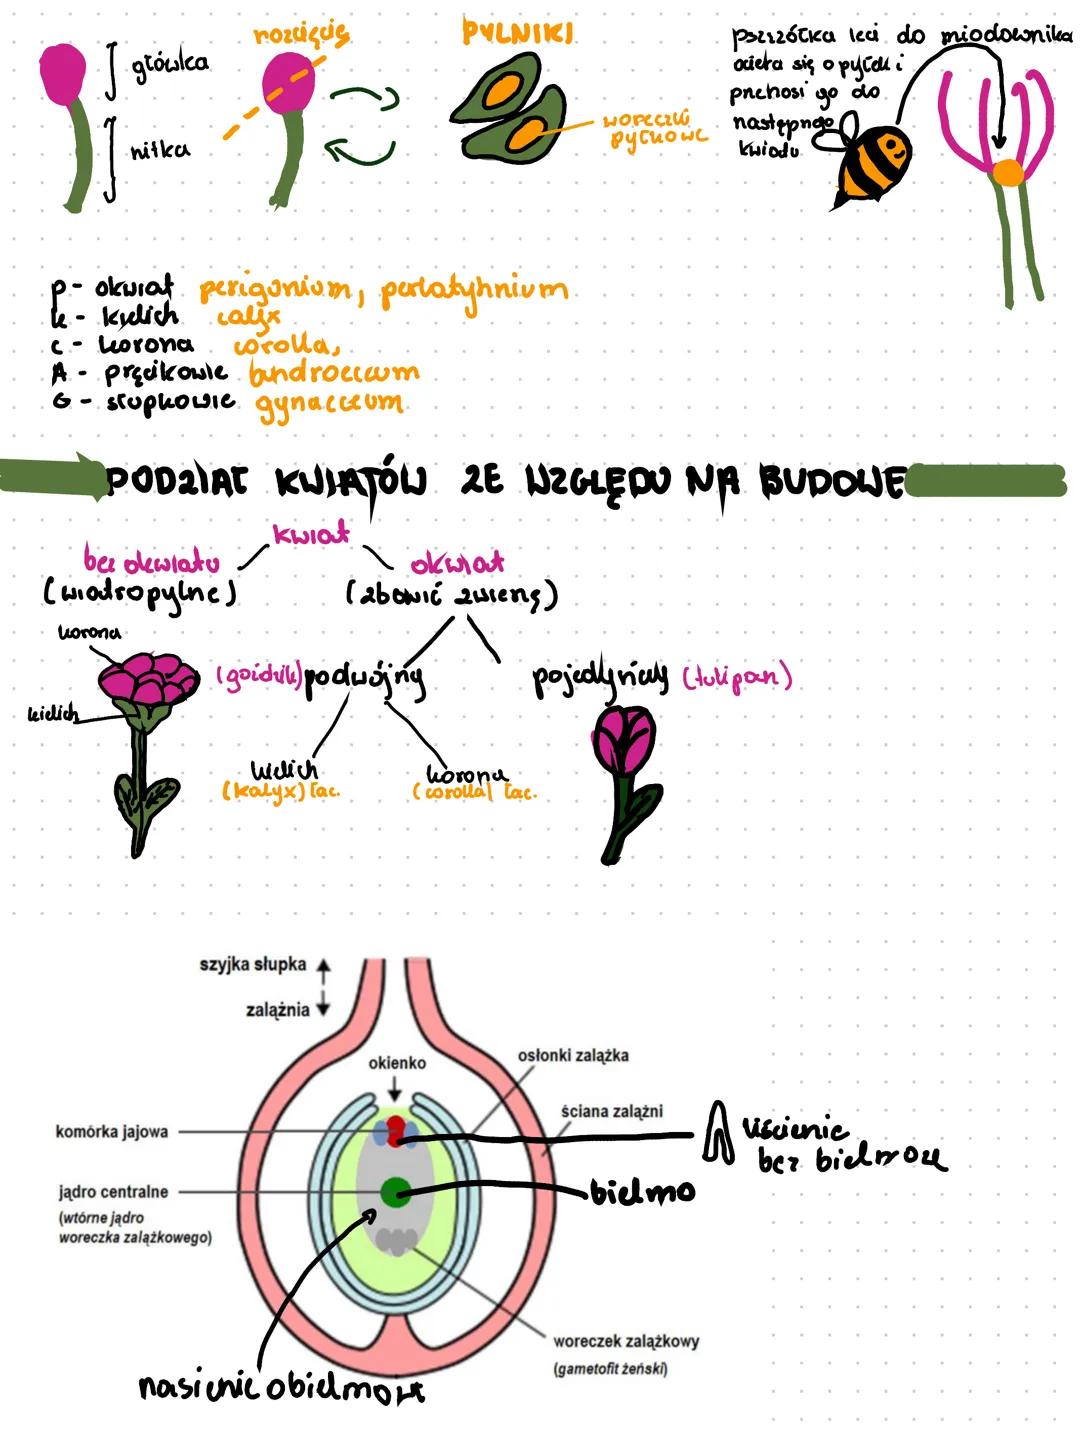 główka
nitka
rozcięcie
PYLNIKI
woreczki
pyłkowe
pszczółka leci do miodownika
ociera się o pyłek i
przenosi go do
następnego
kwiatu
P - okwiat perigonium,
K - kielich calyx
C - korona corolla,
A - pręcikowie
G - słupkowie gynaeceum
PODZIAŁ KWIATÓW ZE WZGLĘDU NA BUDOWE
kwiat
bez okwiatu
(wiatropylne)
okwiat
(zbawić zwierzę)
korona
kielich
(goździk) podwójny
pojedyńczy (tulipan)
kielich
(kalyx) łac.
korona
(corolla) łac.
szyjka słupka
zalążnia
okienko
osłonki zalążka
ściana zalążni
komórka jajowa
liścienie
bez bielmowe
jądro centralne
(wtórne jądro
woreczka zalążkowego)
bielmo
woreczek zalążkowy
(gametofit żeński)
nasienie obielmowe